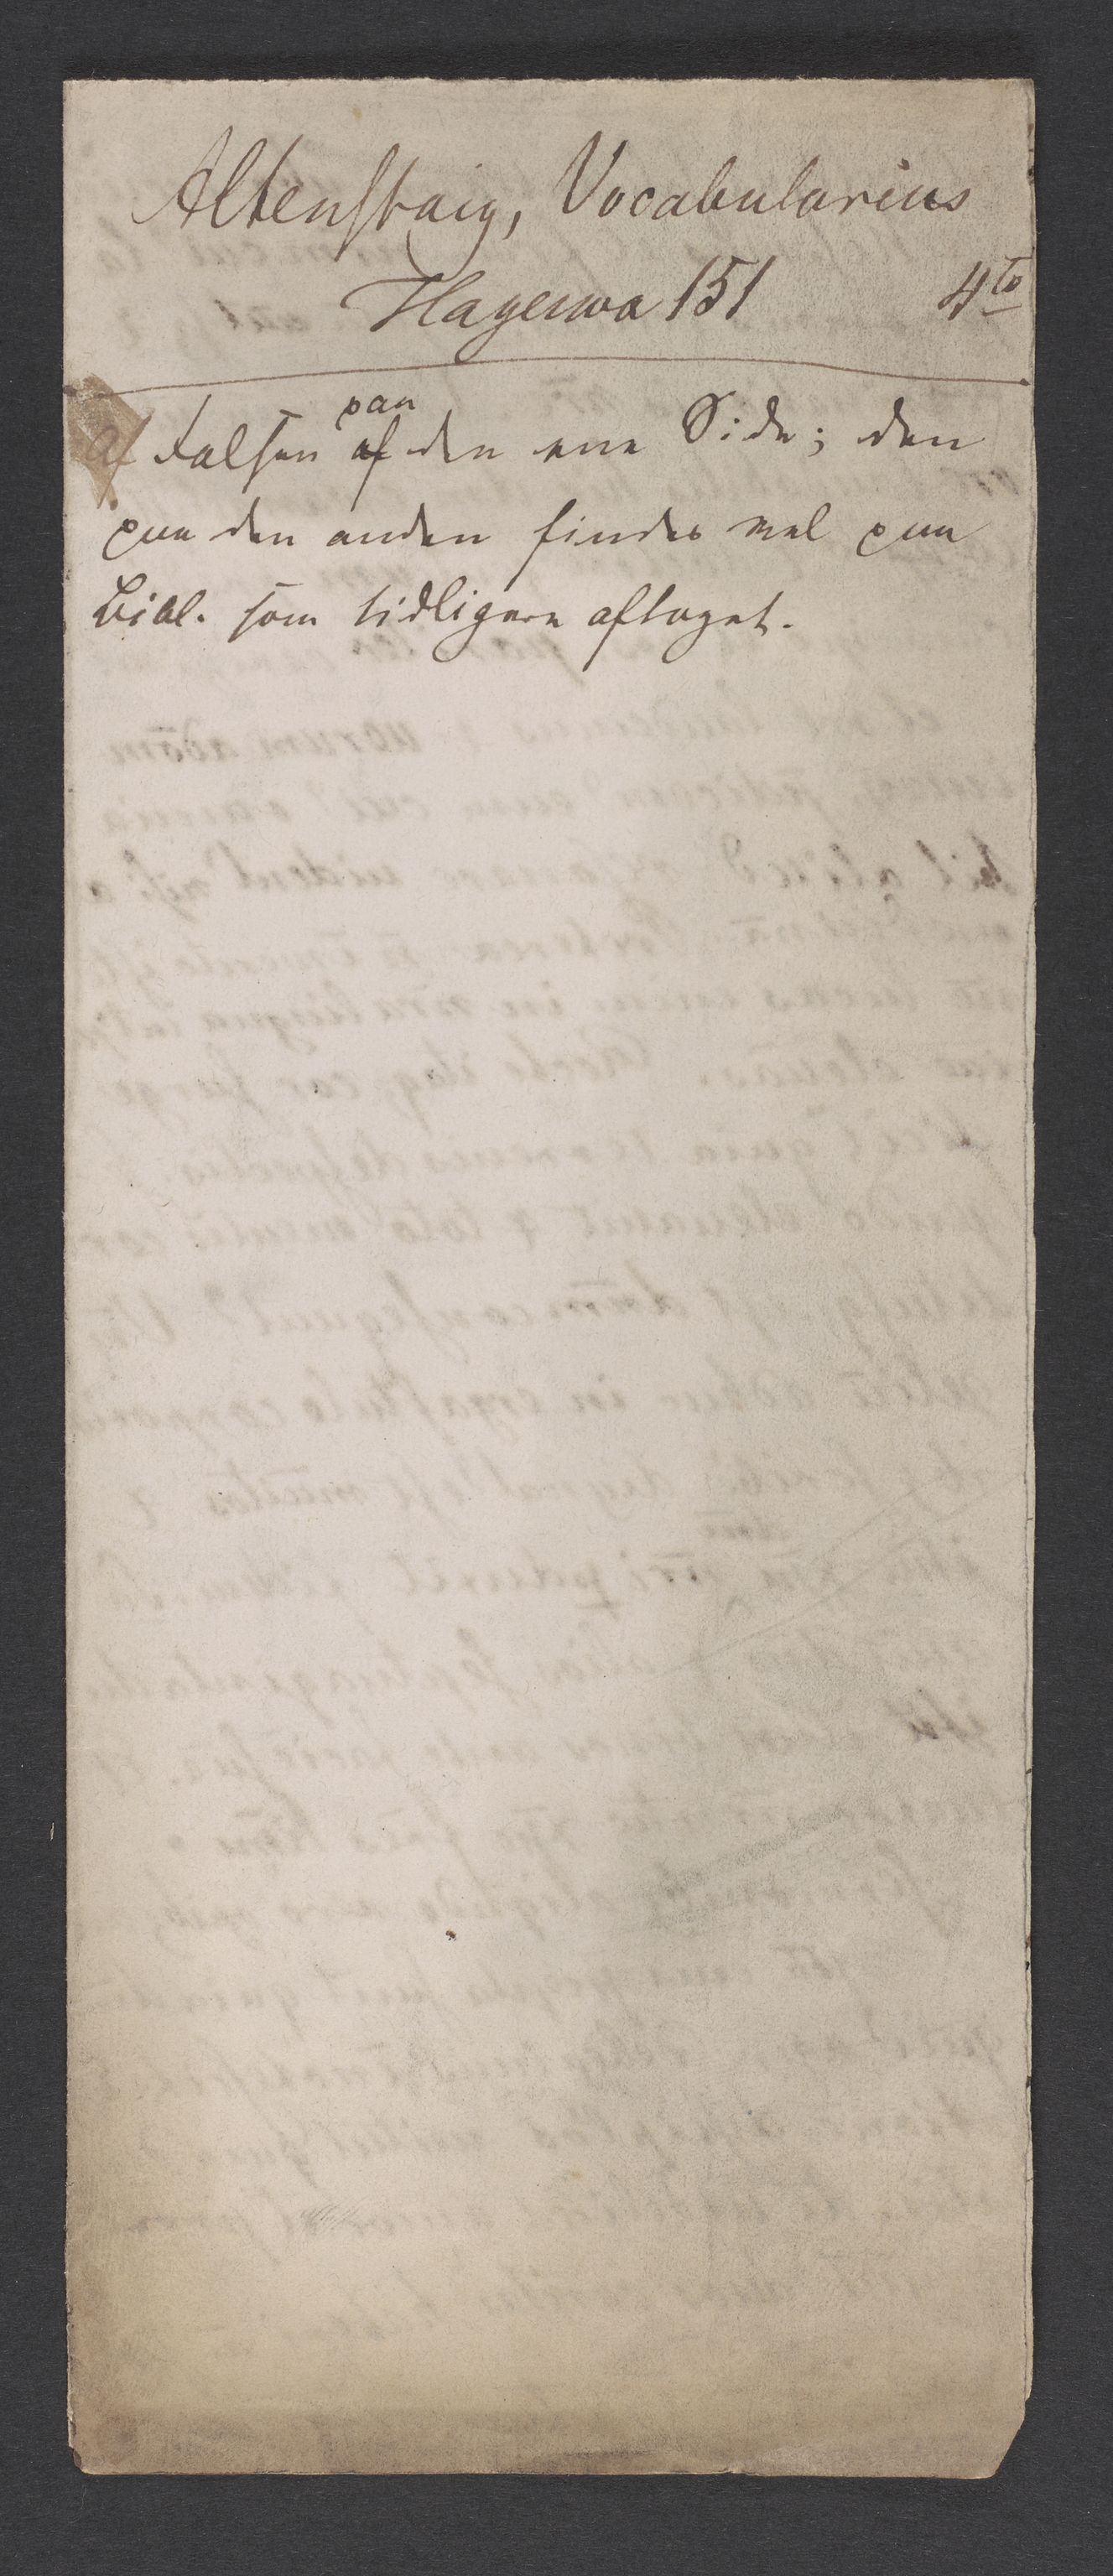 Altenstaig, Vocabularius
Hagenoa 151 4to
Af Falsen paa den ene Side; den
paa den anden findes vel paa
Bibl. som tidligere aftaget.